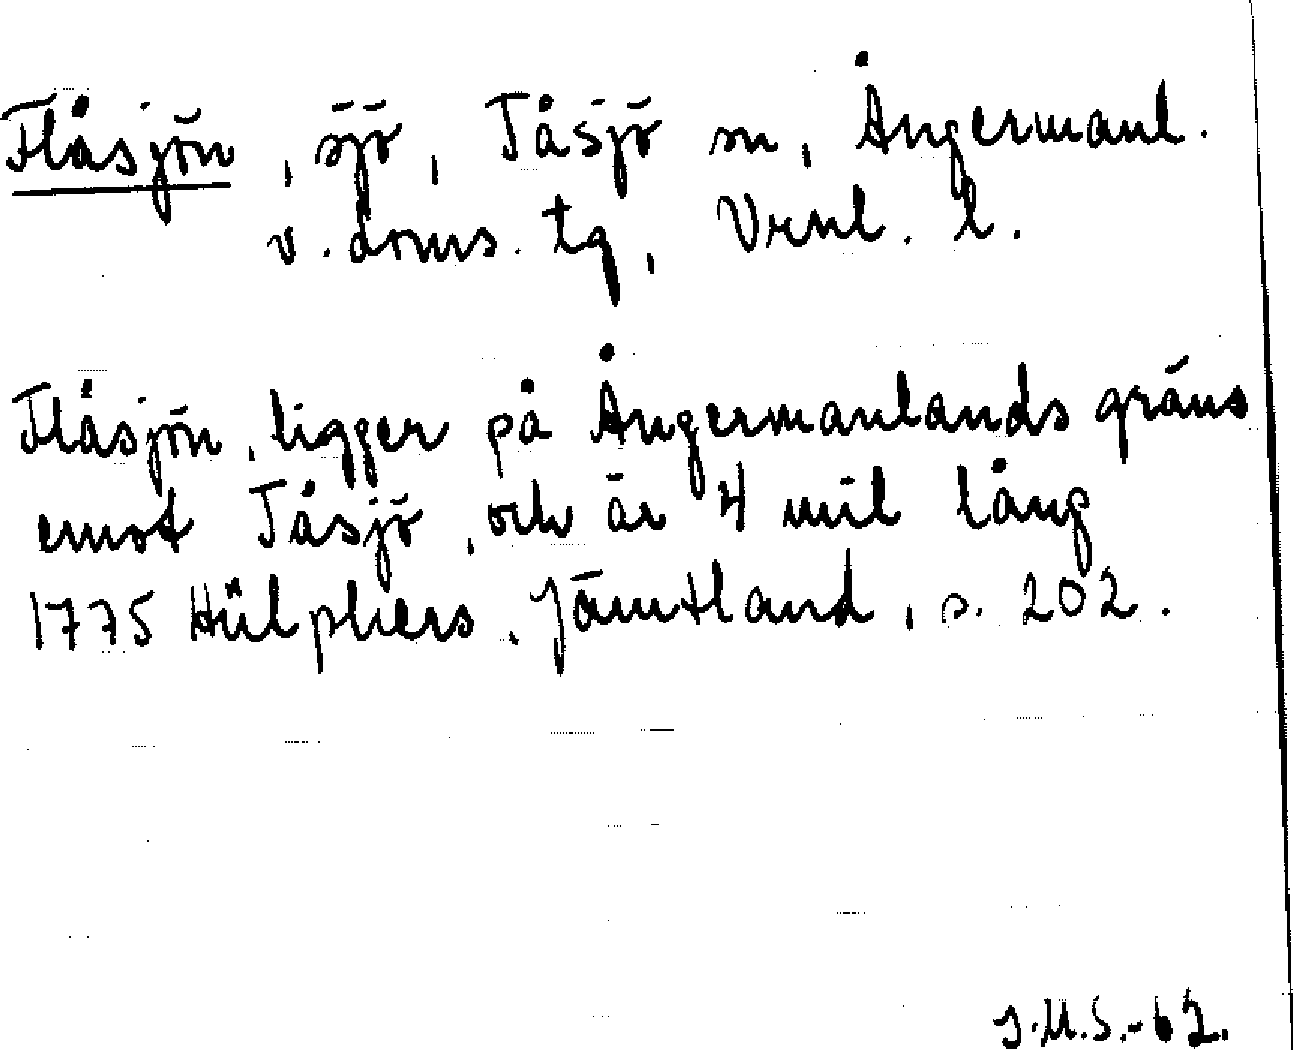 Flåsjön, sjö, Tåsjö sn, Ångermanl.
v. doms. tg, Vrnl. l.
Flåsjön, ligger på Ångermanlands gräns
emot Tåsjö, och är 4 mil lång
1775 Hülphers. Jämtland, s. 202.
J.M.S.-62.